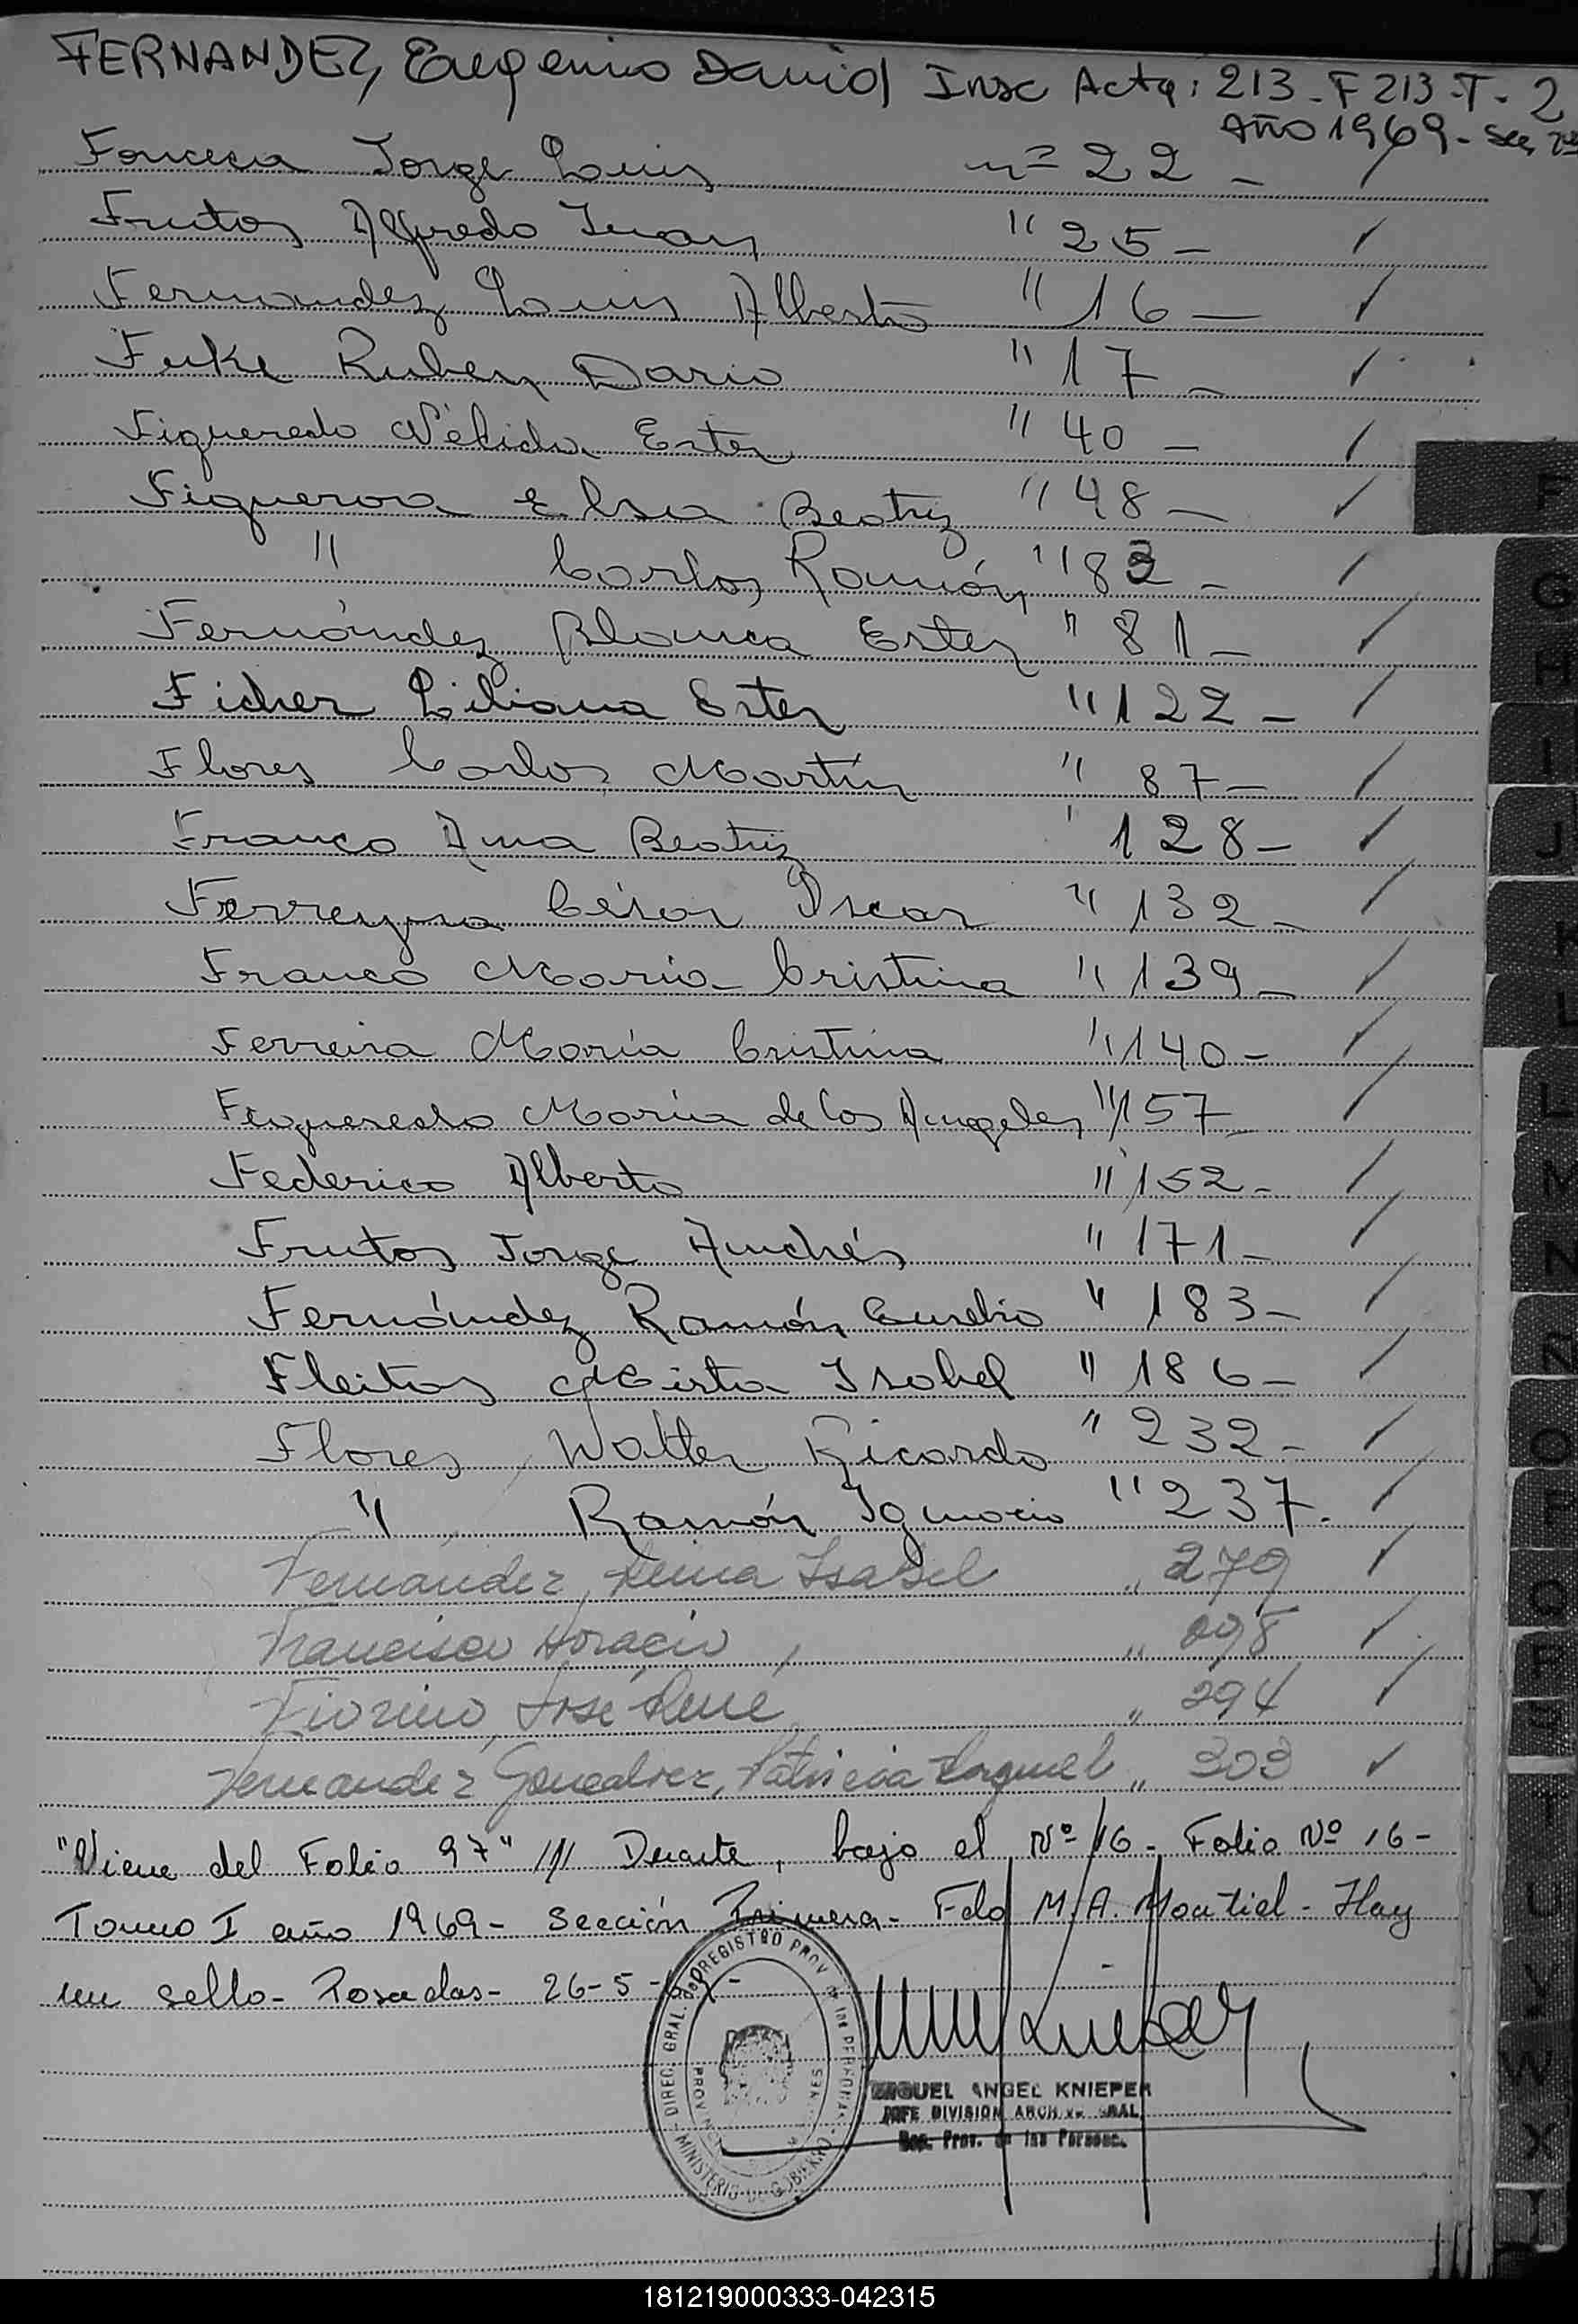 FERNANDEZ, Eugenio David Insc Acta: 213 - F 213 - T - 2
AÑO 1969 - Sec
Fonceca Jorge Luis nº 22 -
Frutos Alfredo Juan " 25 -
Fernandez Luis Alberto " 16 -
Fuke Ruben Dario " 17 -
Figueredo Nélida Ester " 40 -
Figueroa Elsa Beatriz " 48 -
" Carlos Ramón " 82 -
Fernández Blanca Ester " 81 -
Ficher Liliana Ester " 122 -
Flores Carlos Martín " 87 -
Franco Ana Beatriz ' 128 -
Ferreyra César Oscar " 132 -
Franco María Cristina " 139 -
Ferreira María Cristina " 140 -
Figueredo María de los Angeles " 157 -
Federico Alberto " 152 -
Frutos Jorge Andrés " 171 -
Fernández Ramón Eusebio " 183 -
Fleitas Mirta Isabel " 186 -
Flores, Walter Ricardo " 232 -
" Ramón Ignacio " 237.
Fernandez, Reina Isabel " 279
Francisco Horacio, " 298
Fiorino, José René " 294
Fernandez Goncalvez, Patricia Raquel " 303
"Viene del Folio 97" /// Duarte, bajo el Nº 16 - Folio Nº 16 -
Tomo I año 1969 - Sección Primera - Fdo M. A. Montiel - Hay
un sello - Posadas - 26-5-69 -
DIREC. GRAL. DEL REGISTRO PROV. de las PERSONAS
MINISTERIO DE GOBIERNO
MIGUEL ANGEL KNIEPER
JEFE DIVISION ARCH. GRAL.
Reg. Prov. de las Personas.
F
G
H
I
J
K
L
L
M
N
Ñ
O
P
Q
R
S
T
U
V
W
X
181219000333-042315